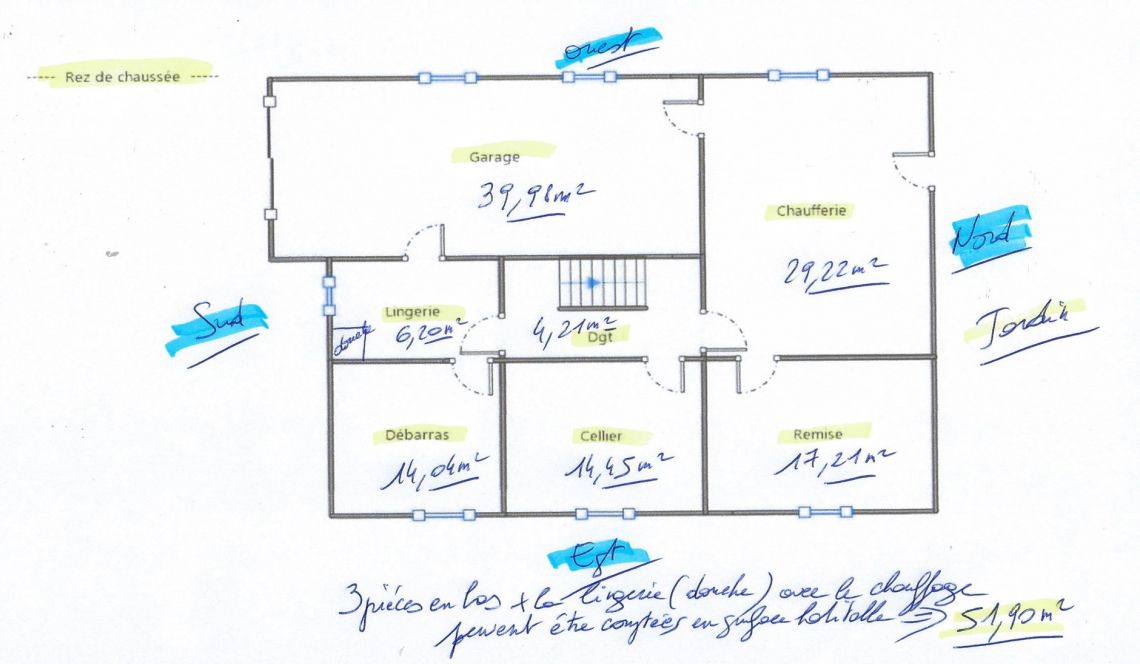 Ouest
Rez de chaussée
Garage
39,98m²
Chaufferie
29,22m²
Nord
Jardin
Sud
Lingerie
6,20m²
douche
4,21m²
Dgt
Débarras
14,04m²
Cellier
14,45m²
Remise
17,21m²
Est
3 pièces en bas + la lingerie (douche) avec le chauffage
peuvent être comptées en surface habitable => 51,90m²